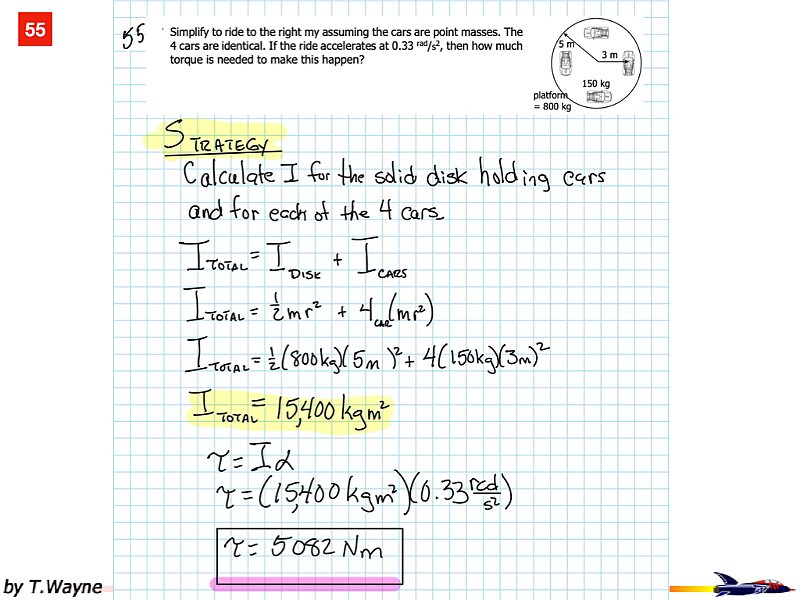 55
55
Simplify to ride to the right my assuming the cars are point masses. The
4 cars are identical. If the ride accelerates at 0.33 rad/s², then how much
torque is needed to make this happen?
5 m
3 m
150 kg
platform
= 800 kg
STRATEGY
Calculate I for the solid disk holding cars
and for each of the 4 cars.
I TOTAL = I DISK + I CARS
I TOTAL = ½ mr² + 4 CAR (mr²)
I TOTAL = ½ (800kg)(5m)² + 4(150kg)(3m)²
I TOTAL = 15,400 kgm²
τ = Iα
τ = (15,400 kgm²)(0.33 rad/s²)
τ = 5082 Nm
by T.Wayne